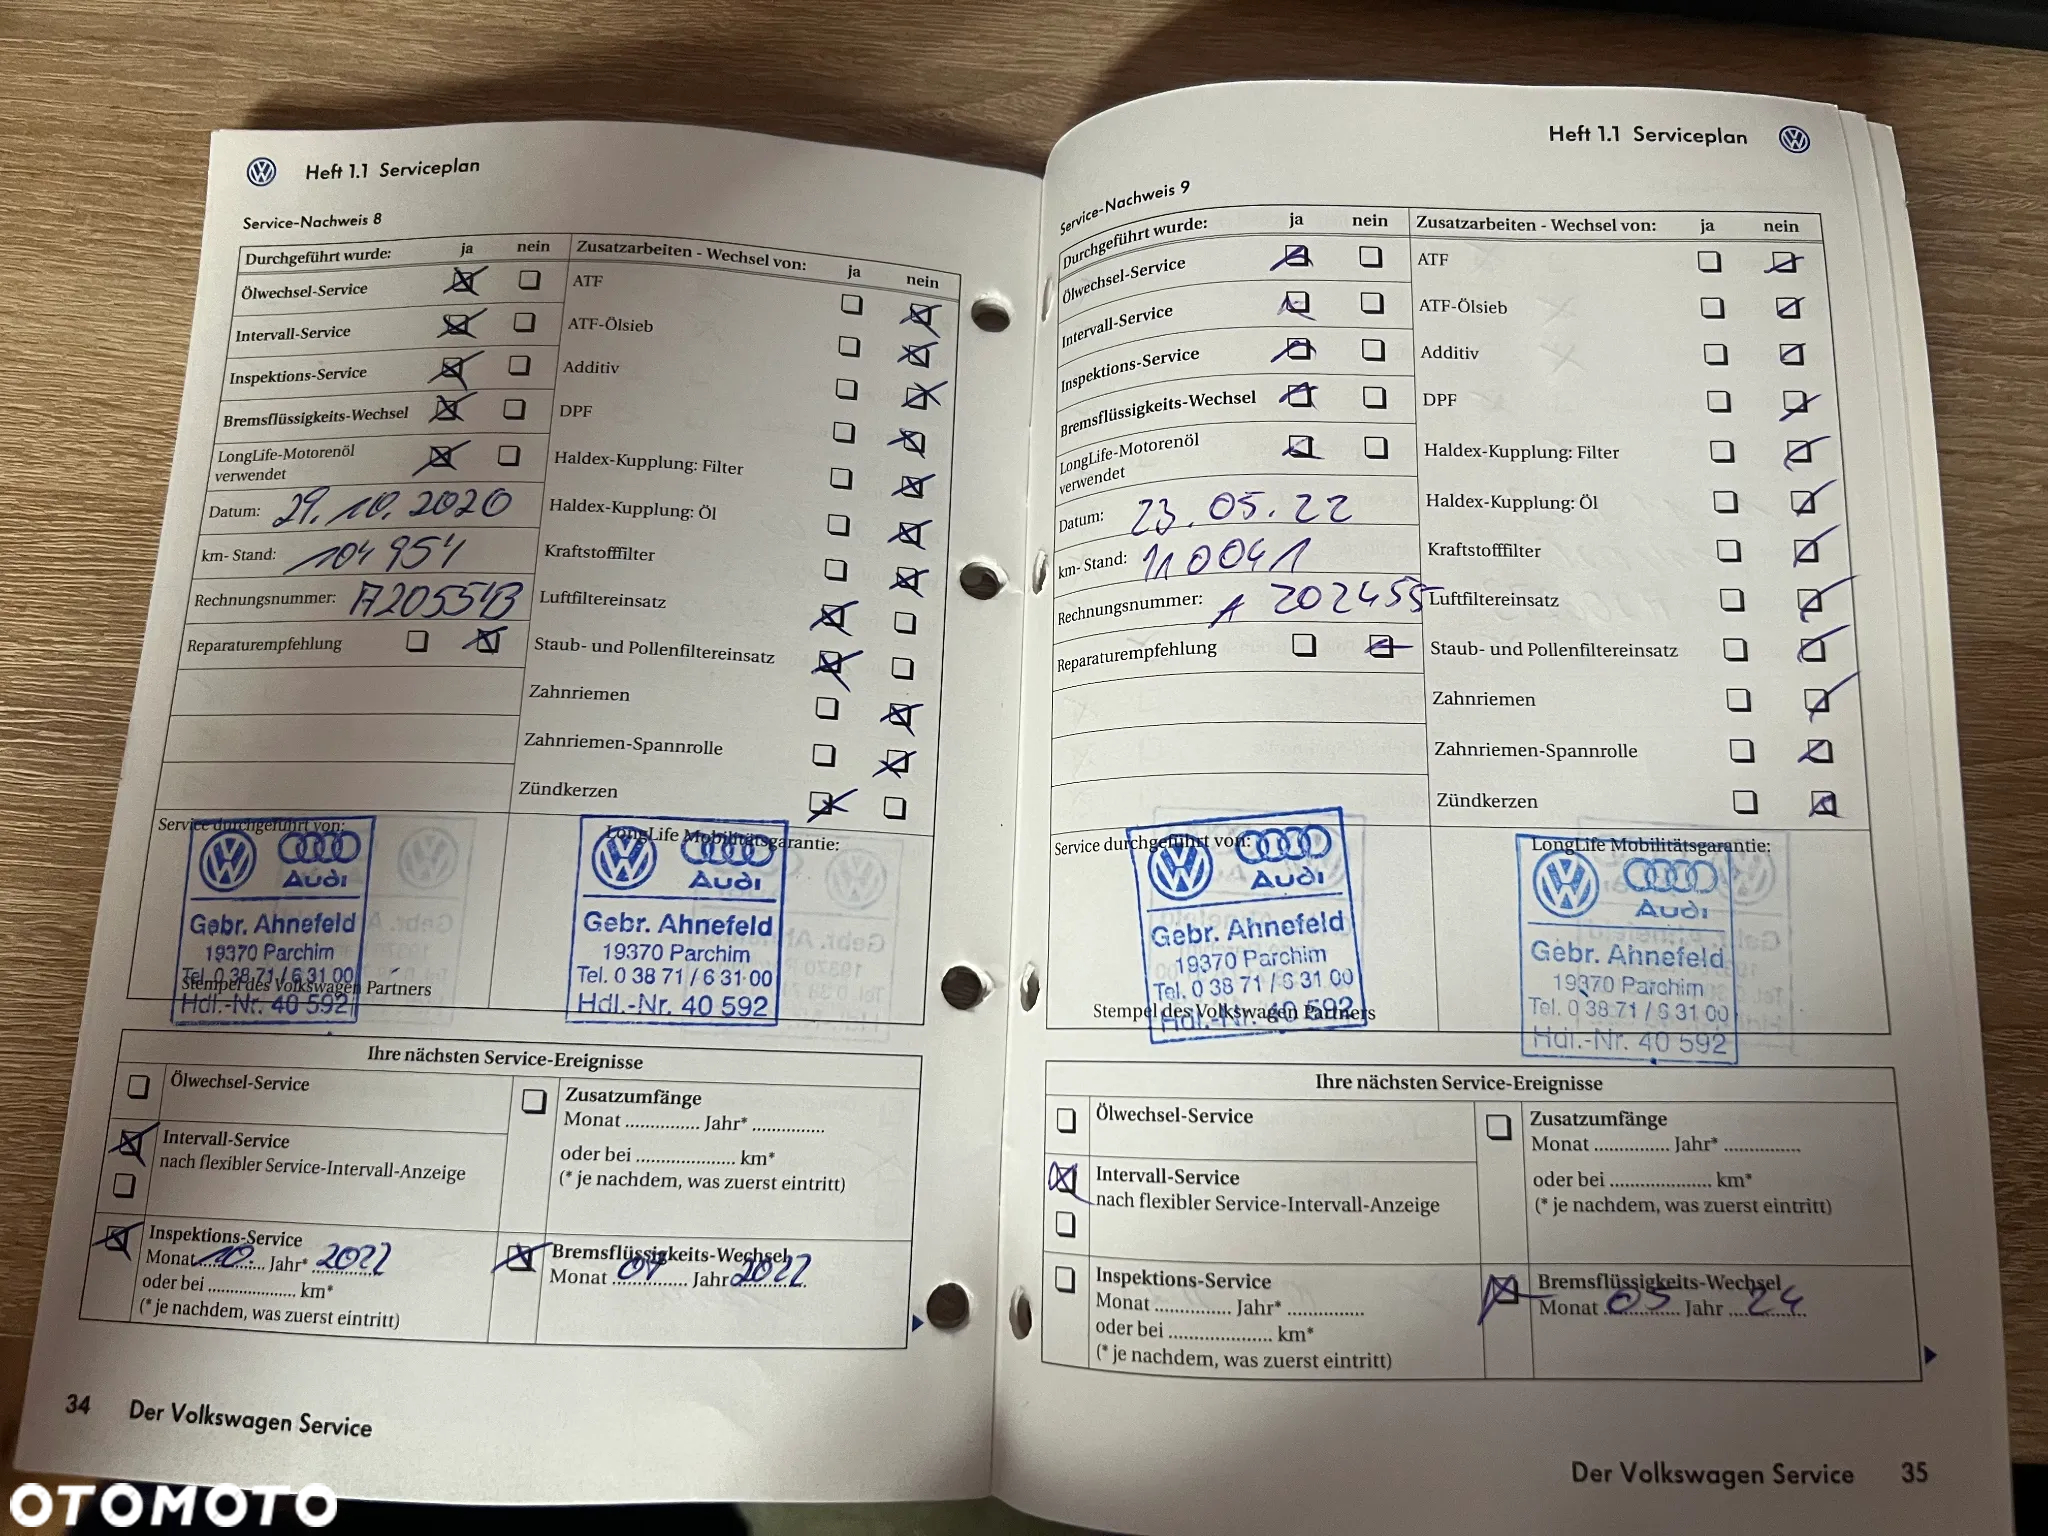 Heft 1.1 Serviceplan
Service-Nachweis 8
Durchgeführt wurde: ja nein
Ölwechsel-Service
Intervall-Service
Inspektions-Service
Bremsflüssigkeits-Wechsel
LongLife-Motorenöl
verwendet
Datum: 29.10.2020
km- Stand: 104 954
Rechnungsnummer:
Reparaturempfehlung
Zusatzarbeiten - Wechsel von: ja nein
ATF
ATF-Ölsieb
Additiv
DPF
Haldex-Kupplung: Filter
Haldex-Kupplung: Öl
Kraftstofffilter
Luftfiltereinsatz
Staub- und Pollenfiltereinsatz
Zahnriemen
Zahnriemen-Spannrolle
Zündkerzen
Service durchgeführt von:
Audi
Gebr. Ahnefeld
19370 Parchim
Tel. 0 38 71 / 6 31 00
Stempel des Volkswagen Partners
Hdl.-Nr. 40 592
LongLife Mobilitätsgarantie:
Audi
Gebr. Ahnefeld
19370 Parchim
Tel. 0 38 71 / 6 31 00
Hdl.-Nr. 40 592
Ihre nächsten Service-Ereignisse
Ölwechsel-Service
Intervall-Service
nach flexibler Service-Intervall-Anzeige
Inspektions-Service
Monat 10. Jahr* 2022
oder bei .................... km*
(* je nachdem, was zuerst eintritt)
Zusatzumfänge
Monat ............... Jahr* ...............
oder bei .................... km*
(* je nachdem, was zuerst eintritt)
Bremsflüssigkeits-Wechsel
Monat Jahr 2022
34 Der Volkswagen Service
Heft 1.1 Serviceplan
Service-Nachweis 9
Durchgeführt wurde: ja nein
Ölwechsel-Service
Intervall-Service
Inspektions-Service
Bremsflüssigkeits-Wechsel
LongLife-Motorenöl
verwendet
Datum: 23.05.22
km- Stand: 110041
Rechnungsnummer: A 202455
Reparaturempfehlung
Zusatzarbeiten - Wechsel von: ja nein
ATF
ATF-Ölsieb
Additiv
DPF
Haldex-Kupplung: Filter
Haldex-Kupplung: Öl
Kraftstofffilter
Luftfiltereinsatz
Staub- und Pollenfiltereinsatz
Zahnriemen
Zahnriemen-Spannrolle
Zündkerzen
Service durchgeführt von:
Audi
Gebr. Ahnefeld
19370 Parchim
Tel. 0 38 71 / 6 31 00
Stempel des Volkswagen Partners
Hdl.-Nr. 40 592
LongLife Mobilitätsgarantie:
Audi
Gebr. Ahnefeld
19370 Parchim
Tel. 0 38 71 / 6 31 00
Hdl.-Nr. 40 592
Ihre nächsten Service-Ereignisse
Ölwechsel-Service
Intervall-Service
nach flexibler Service-Intervall-Anzeige
Inspektions-Service
Monat ............... Jahr* ...............
oder bei .................... km*
(* je nachdem, was zuerst eintritt)
Zusatzumfänge
Monat ............... Jahr* ...............
oder bei .................... km*
(* je nachdem, was zuerst eintritt)
Bremsflüssigkeits-Wechsel
Monat 05 Jahr 24
Der Volkswagen Service 35
OTOMOTO